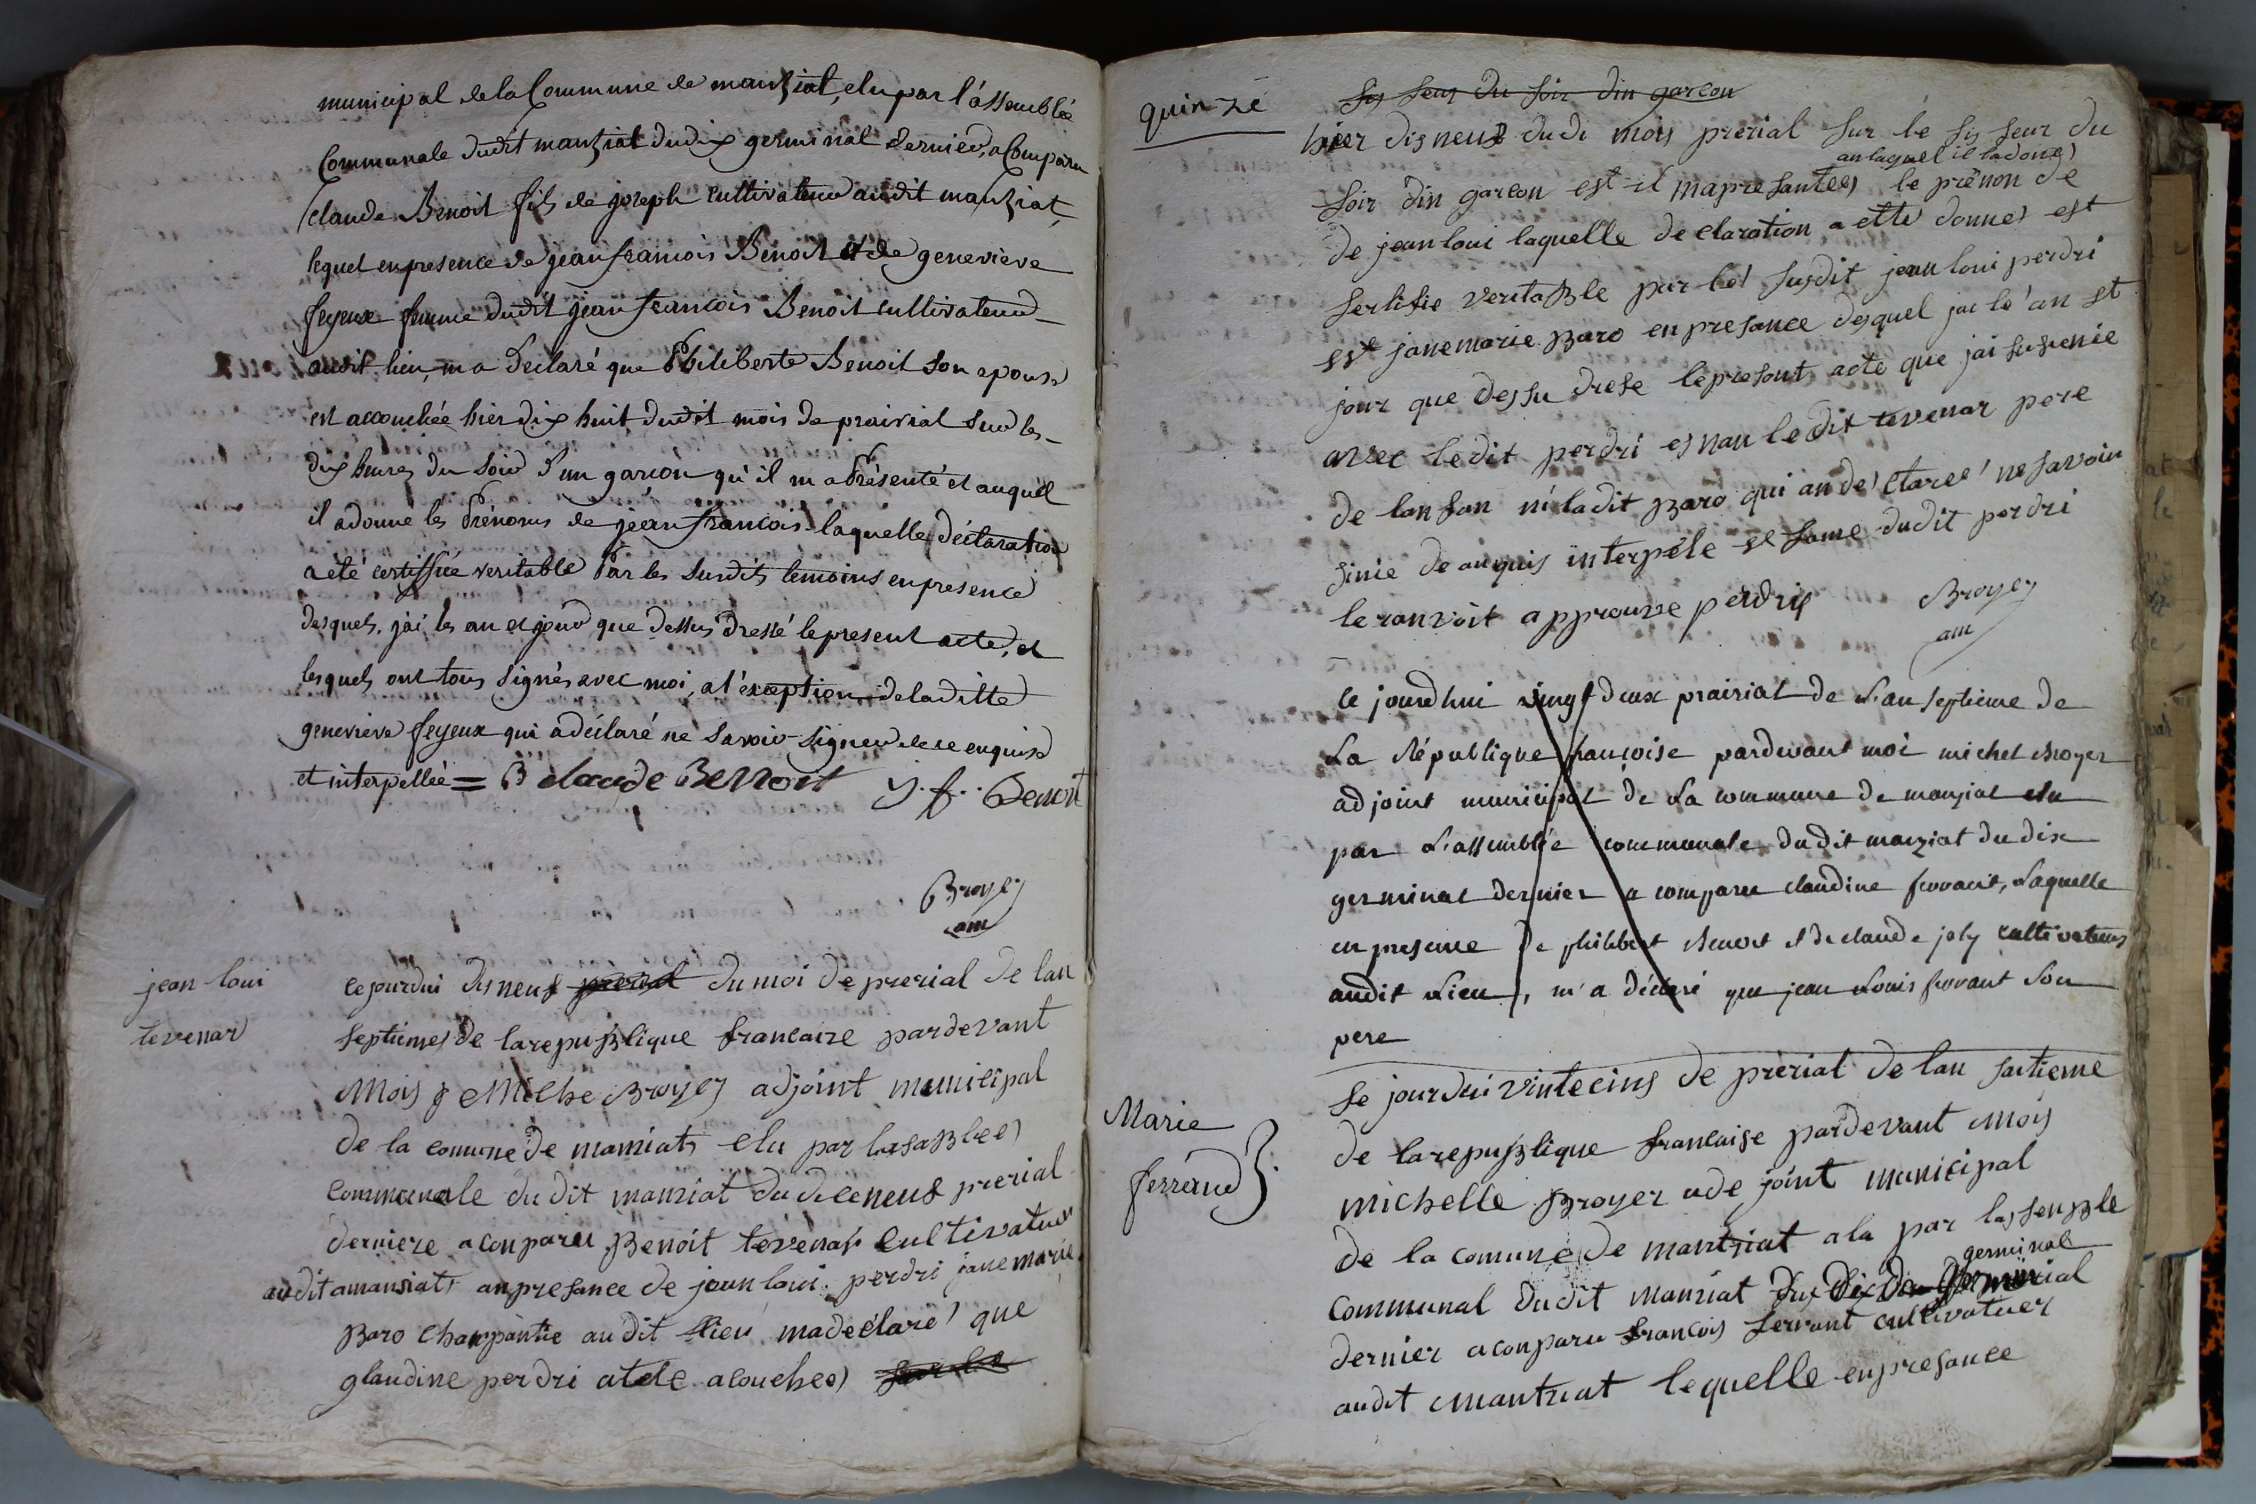 municipal de la Commune de manziat, elu par l'assemblée
Communale dudit manziat du dix germinal dernier, a Comparu
Claude Benoit fils de joseph cultivateur audit manziat,
lequel en presence de jean francois Benoit et de geneviève
feyeux femme dudit jean francois Benoit cultivateur
audit lieu, m a Déclaré que Philiberte Benoit son epouse
est accouchée hier dix huit dudit mois de prairial sur les
dix heures du soir d'un garçon qu'il m a Présenté et auquel
il a donné les Prénoms de jean francois laquelle déclaration
a eté certiffiée veritable Par les susdits temoins en presence
desquels, j'ai les an et jour que dessus dressé le present acte, et
lesquels ont tous signés avec moi, a l'exception de laditte
geneviève feyeux qui a déclaré ne savoir signer de ce enquise
et interpellée = B claude Benoit J. f. Benoit
Broyer
am
jean loui
tevenar
ce jourdui disneuf prerial du moi de prerial de lan
septieme de la repuBlique francaize pardevant
Mois Miche Broyer adjoint municipal
de la comune de manziat elu par lasaBlee
communale du dit manziat du diceneuf prerial
derniere a conparu Benoit tevenar cultivatuer
audit a mansiat anpresance de jean loui perdri jane marie
Baro charpantie au dit lieu madeclare que
glaudine perdri atele a couchee sur le
quinze
sis seur du soir din garcon
hier disneuf dudi mois prerial sur le sis seur du
au laquel il la done
soir din garcon est il mapresantee le prenon de
de jean loui laquelle declaration a ette donne est
sertifie veritaBle par le susdit jean loui perdri
est jane marie Baro en presance desquel jai le an st
jour que dessu drese le presant acte que jai susenie
avec le dit perdri es nan le dit tevenar pere
de lansan ni ladit Baro qui an declaree ne savoir
sinie de anquis interpele st same dudit perdri
le ranvoit approuve perdrij
Broyer
am
ce jourdhui vingt deux prairial de L'an septieme de
La République françoise pardevant moi michel Broyer
adjoint municipal de La commune de manziat elu
par L'assemblée communale dudit manziat du dix
germinal dernier a comparu claudine, Laquelle
en presence de philibert Benoit et de claude joly cultivateurs
audit Lieu, m'a déclaré que jean Louis son
pere
Marie
ferrand
se jour dui vinte cinq de prerial de lan saitieme
de la repuBlique francaise pardevant Mois
michelle Broyer ade joint municipal
de la comune de mantziat a la par lassenBle
germinal
communal dudit manziat dux dix du
dernier a conparu francois servant cultivatuer
audit mantziat lequelle en presance